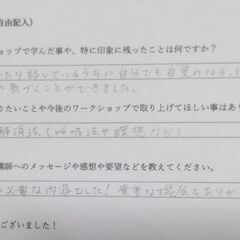 自由記入）
ョップで学んだ事や、特に印象に残ったことは何ですか？
たり話しているうちに、自分でも自覚のなかった
に気づくことができました。
りたいことや今後のワークショップで取り上げてほしい事はあり
解消法（呼吸法や瞑想など）
講師へのメッセージや感想や要望などを教えてください。
に必要な内容でした！貴重な機会をありが
ございました！